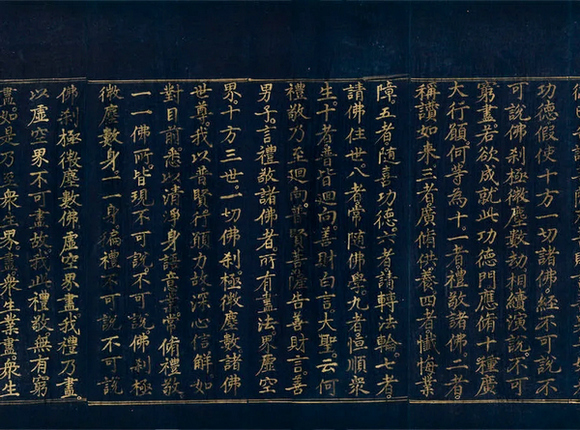 功德假使十方一切諸佛。經不可說不
可說佛剎極微塵數劫相續演說。不可
窮盡若欲成就此功德門應脩十種廣
大行願。何等為十。一者禮敬諸佛。二者。
稱讚如來三者廣脩供養四者懺悔業
障。五者隨喜功德。六者請轉法輪七者。
請佛住世。八者常隨佛學九者恒順衆
生。十者普皆迴向。善財白言大聖。云何
禮敬乃至迴向普賢菩薩告善財言。善
男子。言禮敬諸佛者所有盡法界虛空
界。十方三世。一切佛剎。極微塵數諸佛
世尊我以普賢行願力故深心信解如
對目前悉以清淨身語意業。常脩禮敬
一一佛所。皆現不可說。不可說佛剎極
微塵數身一一身。徧禮不可說不可說
佛剎極微塵數佛虛空界盡我禮乃盡。
以虛空界不可盡故我此禮敬無有窮
盡如是乃至衆生界盡衆生業盡衆生